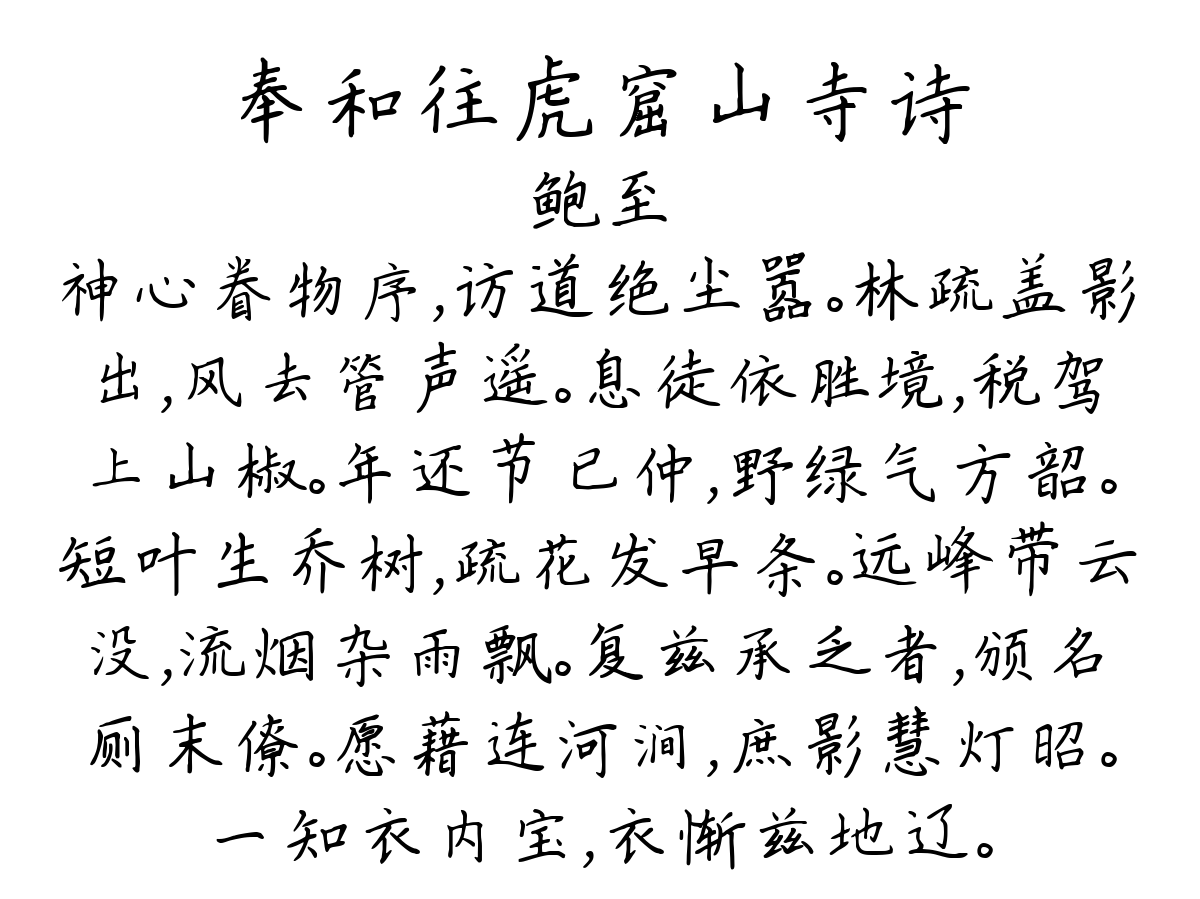 奉和往虎窟山寺诗
鲍至
神心眷物序,访道绝尘嚣。林疏盖影
出,风去管声遥。息徒依胜境,税驾
上山椒。年还节已仲,野绿气方韶。
短叶生乔树,疏花发早条。远峰带云
没,流烟杂雨飘。复兹承乏者,颁名
厕末僚。愿藉连河涧,庶影慧灯昭。
一知衣内宝,衣惭兹地辽。